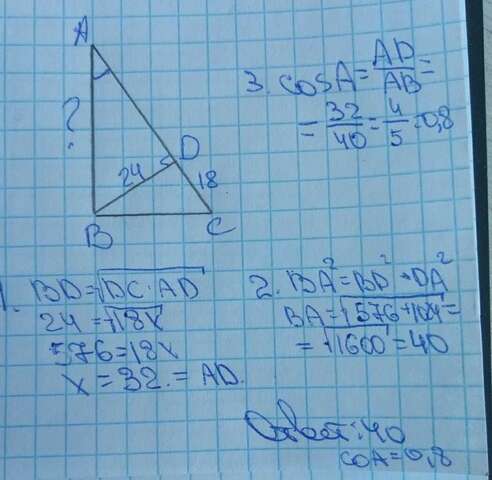 A
?
24
D
18
B
C
3. cosA = AD/AB =
= 32/40 = 4/5 = 0,8
1. BD = √DC·AD
24 = √18x
576 = 18x
x = 32 = AD.
2. BA² = BD² + DA²
BA = √576+1024 =
= √1600 = 40
Ответ: 40
cosA = 0,8